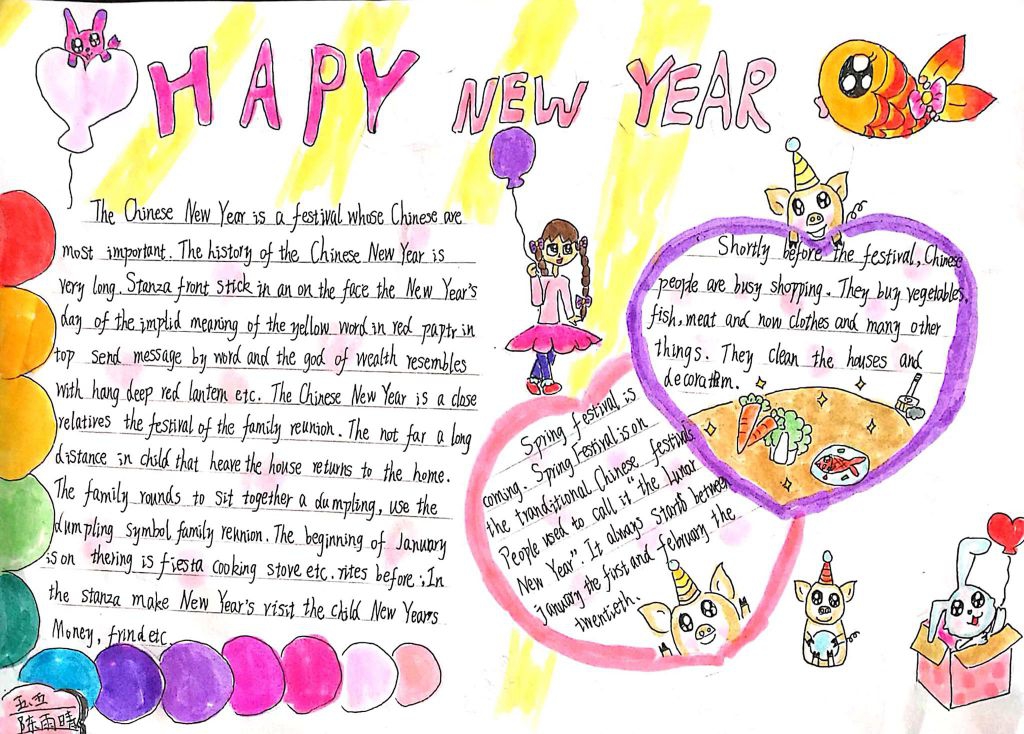 HAPY NEW YEAR
The Chinese New Year is a festival whose Chinese are
most important. The history of the Chinese New Year is
very long. Stanza front stick in an on the face the New Year's
day of the implid meaning of the yellow word in red paptr in
top send message by word and the god of wealth resembles
with hang deep red lantem etc. The Chinese New Year is a close
relatives the festival of the family reunion. The not far a long
distance in child that heave the house returns to the home.
The family rounds to sit together a dumpling, use the
dumpling symbol family reunion. The beginning of January
is on thering is fiesta cooking stove etc. rites before; In
the stanza make New Year's visit the child New Year's
Money, frind etc.
Spring festival is
coming. Spring Festival is on
the tranditional Chinese festivals
People used to call it "the Lunar
New Year". It always starts between
january the first and february the
twentieth.
Shortly before the festival, Chinese
people are busy shopping. They buy vegetables,
fish, meat and now clothes and many other
things. They clean the houses and
decoration.
五五
陈雨晴